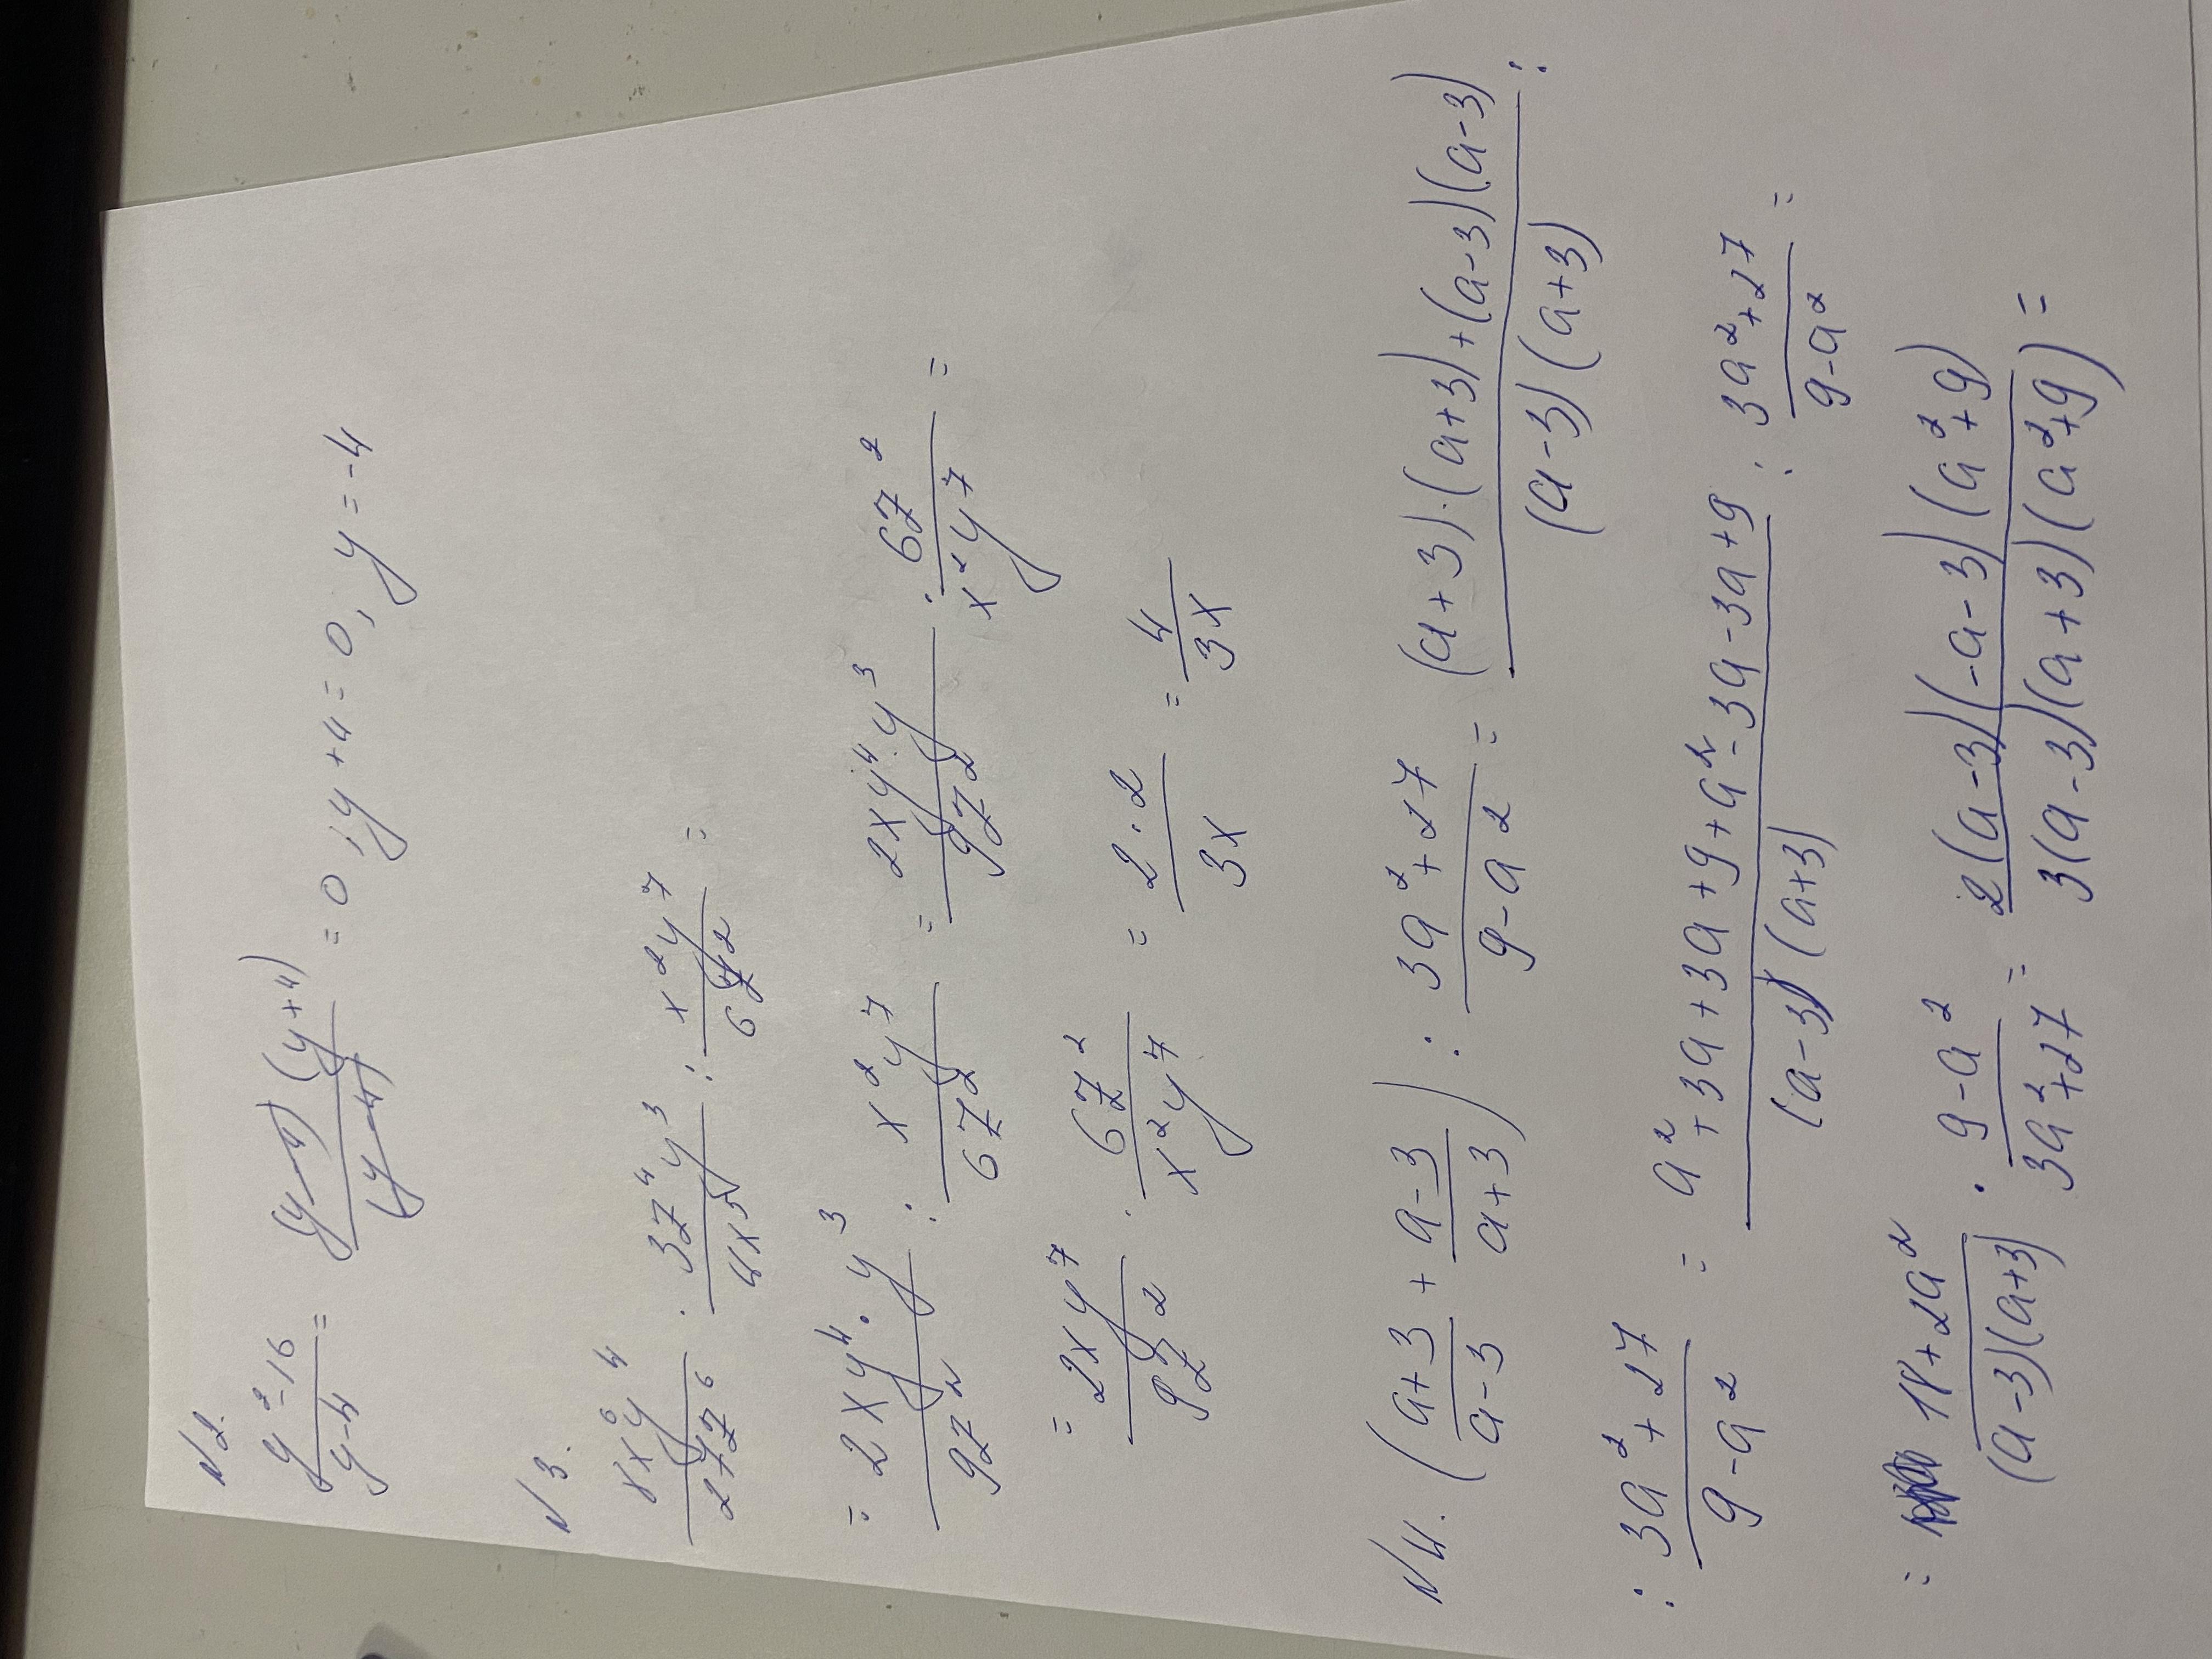 N2.
(y²-16)/(y-4) = ((y-4)(y+4))/(y-4) = 0; y+4=0, y=-4
N3.
(8x⁶y⁴)/(27z⁶) · (3z⁴y³)/(4x⁵) : (x²y⁷)/(6z²) =
= (2xy⁴·y³)/(9z²) : (x²y⁷)/(6z²) = (2xy⁴·y³)/(9z²) · (6z²)/(x²y⁷) =
= (2xy⁷)/(9z²) · (6z²)/(x²y⁷) = (2·2)/(3x) = 4/(3x)
N4. ((a+3)/(a-3) + (a-3)/(a+3)) : (3a²+27)/(9-a²) = ((a+3)·(a+3)+(a-3)(a-3))/((a-3)(a+3)) :
: (3a²+27)/(9-a²) = (a²+3a+3a+9+a²-3a-3a+9)/((a-3)(a+3)) : (3a²+27)/(9-a²) =
= (18+2a²)/((a-3)(a+3)) · (9-a²)/(3a²+27) = (2(a-3)(-a-3)(a²+9))/(3(a-3)(a+3)(a²+9)) =